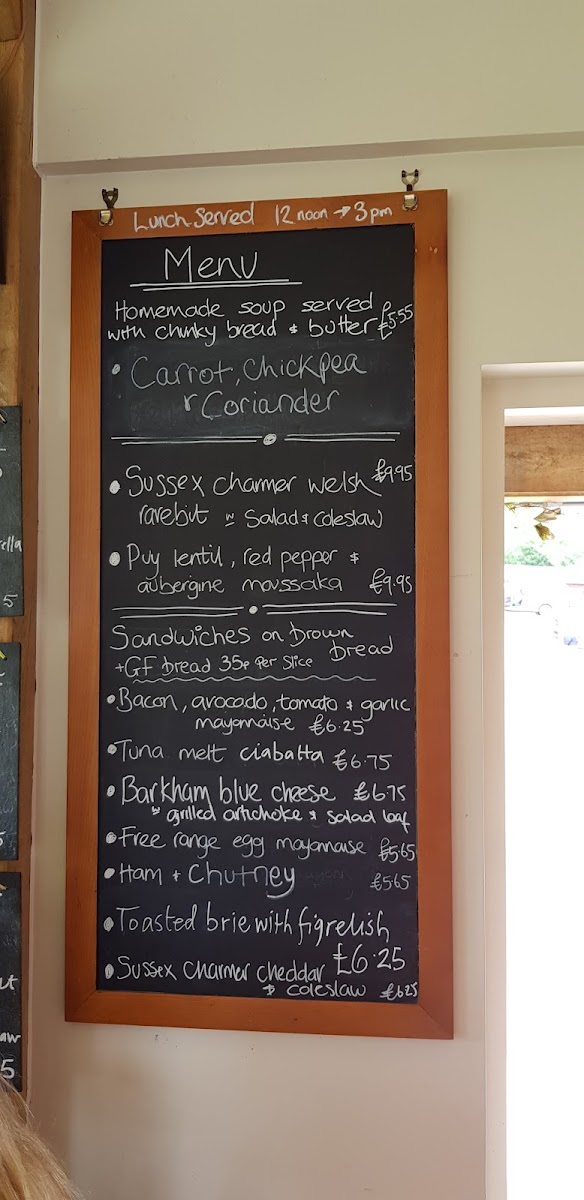 Lunch Served 12 noon → 3pm
Menu
Homemade soup served
with chunky bread & butter £5.55
• Carrot, Chickpea
& Coriander
• Sussex charmer welsh £9.95
rarebit w Salad & Coleslaw
• Puy lentil, red pepper &
aubergine moussaka £9.95
Sandwiches on brown
bread
+ GF bread 35p Per Slice
• Bacon, avocado, tomato & garlic
mayonnaise £6.25
• Tuna melt ciabatta £6.75
• Barkham blue cheese £6.75
w grilled artichoke & salad leaf
• Free range egg mayonnaise £5.65
• Ham + Chutney £5.65
• Toasted brie with fig relish
£6.25
• Sussex Charmer cheddar
& coleslaw £6.25
ella
5
5
ut
aw
5